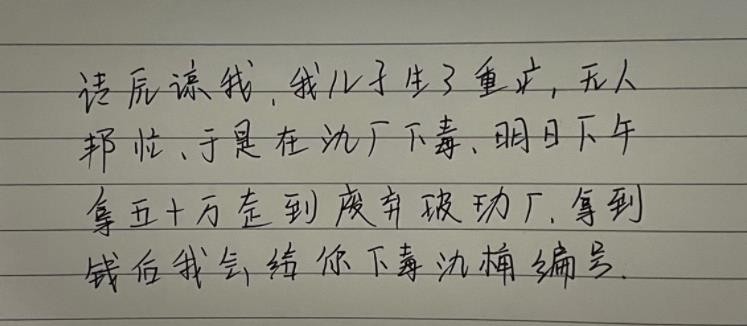 请原谅我，我儿子生了重疒，无人
邦忙、于是在氿厂下毒、明日下午
拿五十万走到废弃玻㺬厂，拿到
钱后我会给你下毒氿桶编号.